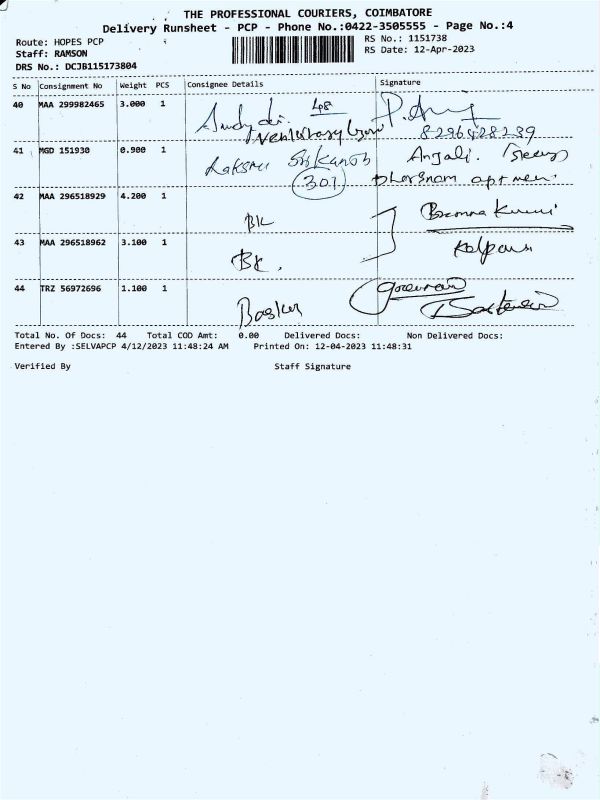 THE PROFESSIONAL COURIERS, COIMBATORE
Delivery Runsheet - PCP - Phone No.:0422-3505555 - Page No.:4
Route: HOPES PCP
Staff: RAMSON
DRS No.: DCJB115173804
RS No.: 1151738
RS Date: 12-Apr-2023
S No Consignment No Weight PCS Consignee Details Signature
40 MAA 299982465 3.000 1
8296428239
41 MGD 151930 0.900 1 Anjali.
301
42 MAA 296518929 4.200 1 BK
43 MAA 296518962 3.100 1 BK.
44 TRZ 56972696 1.100 1 Basker
Total No. Of Docs: 44 Total COD Amt: 0.00 Delivered Docs: Non Delivered Docs:
Entered By :SELVAPCP 4/12/2023 11:48:24 AM Printed On: 12-04-2023 11:48:31
Verified By Staff Signature